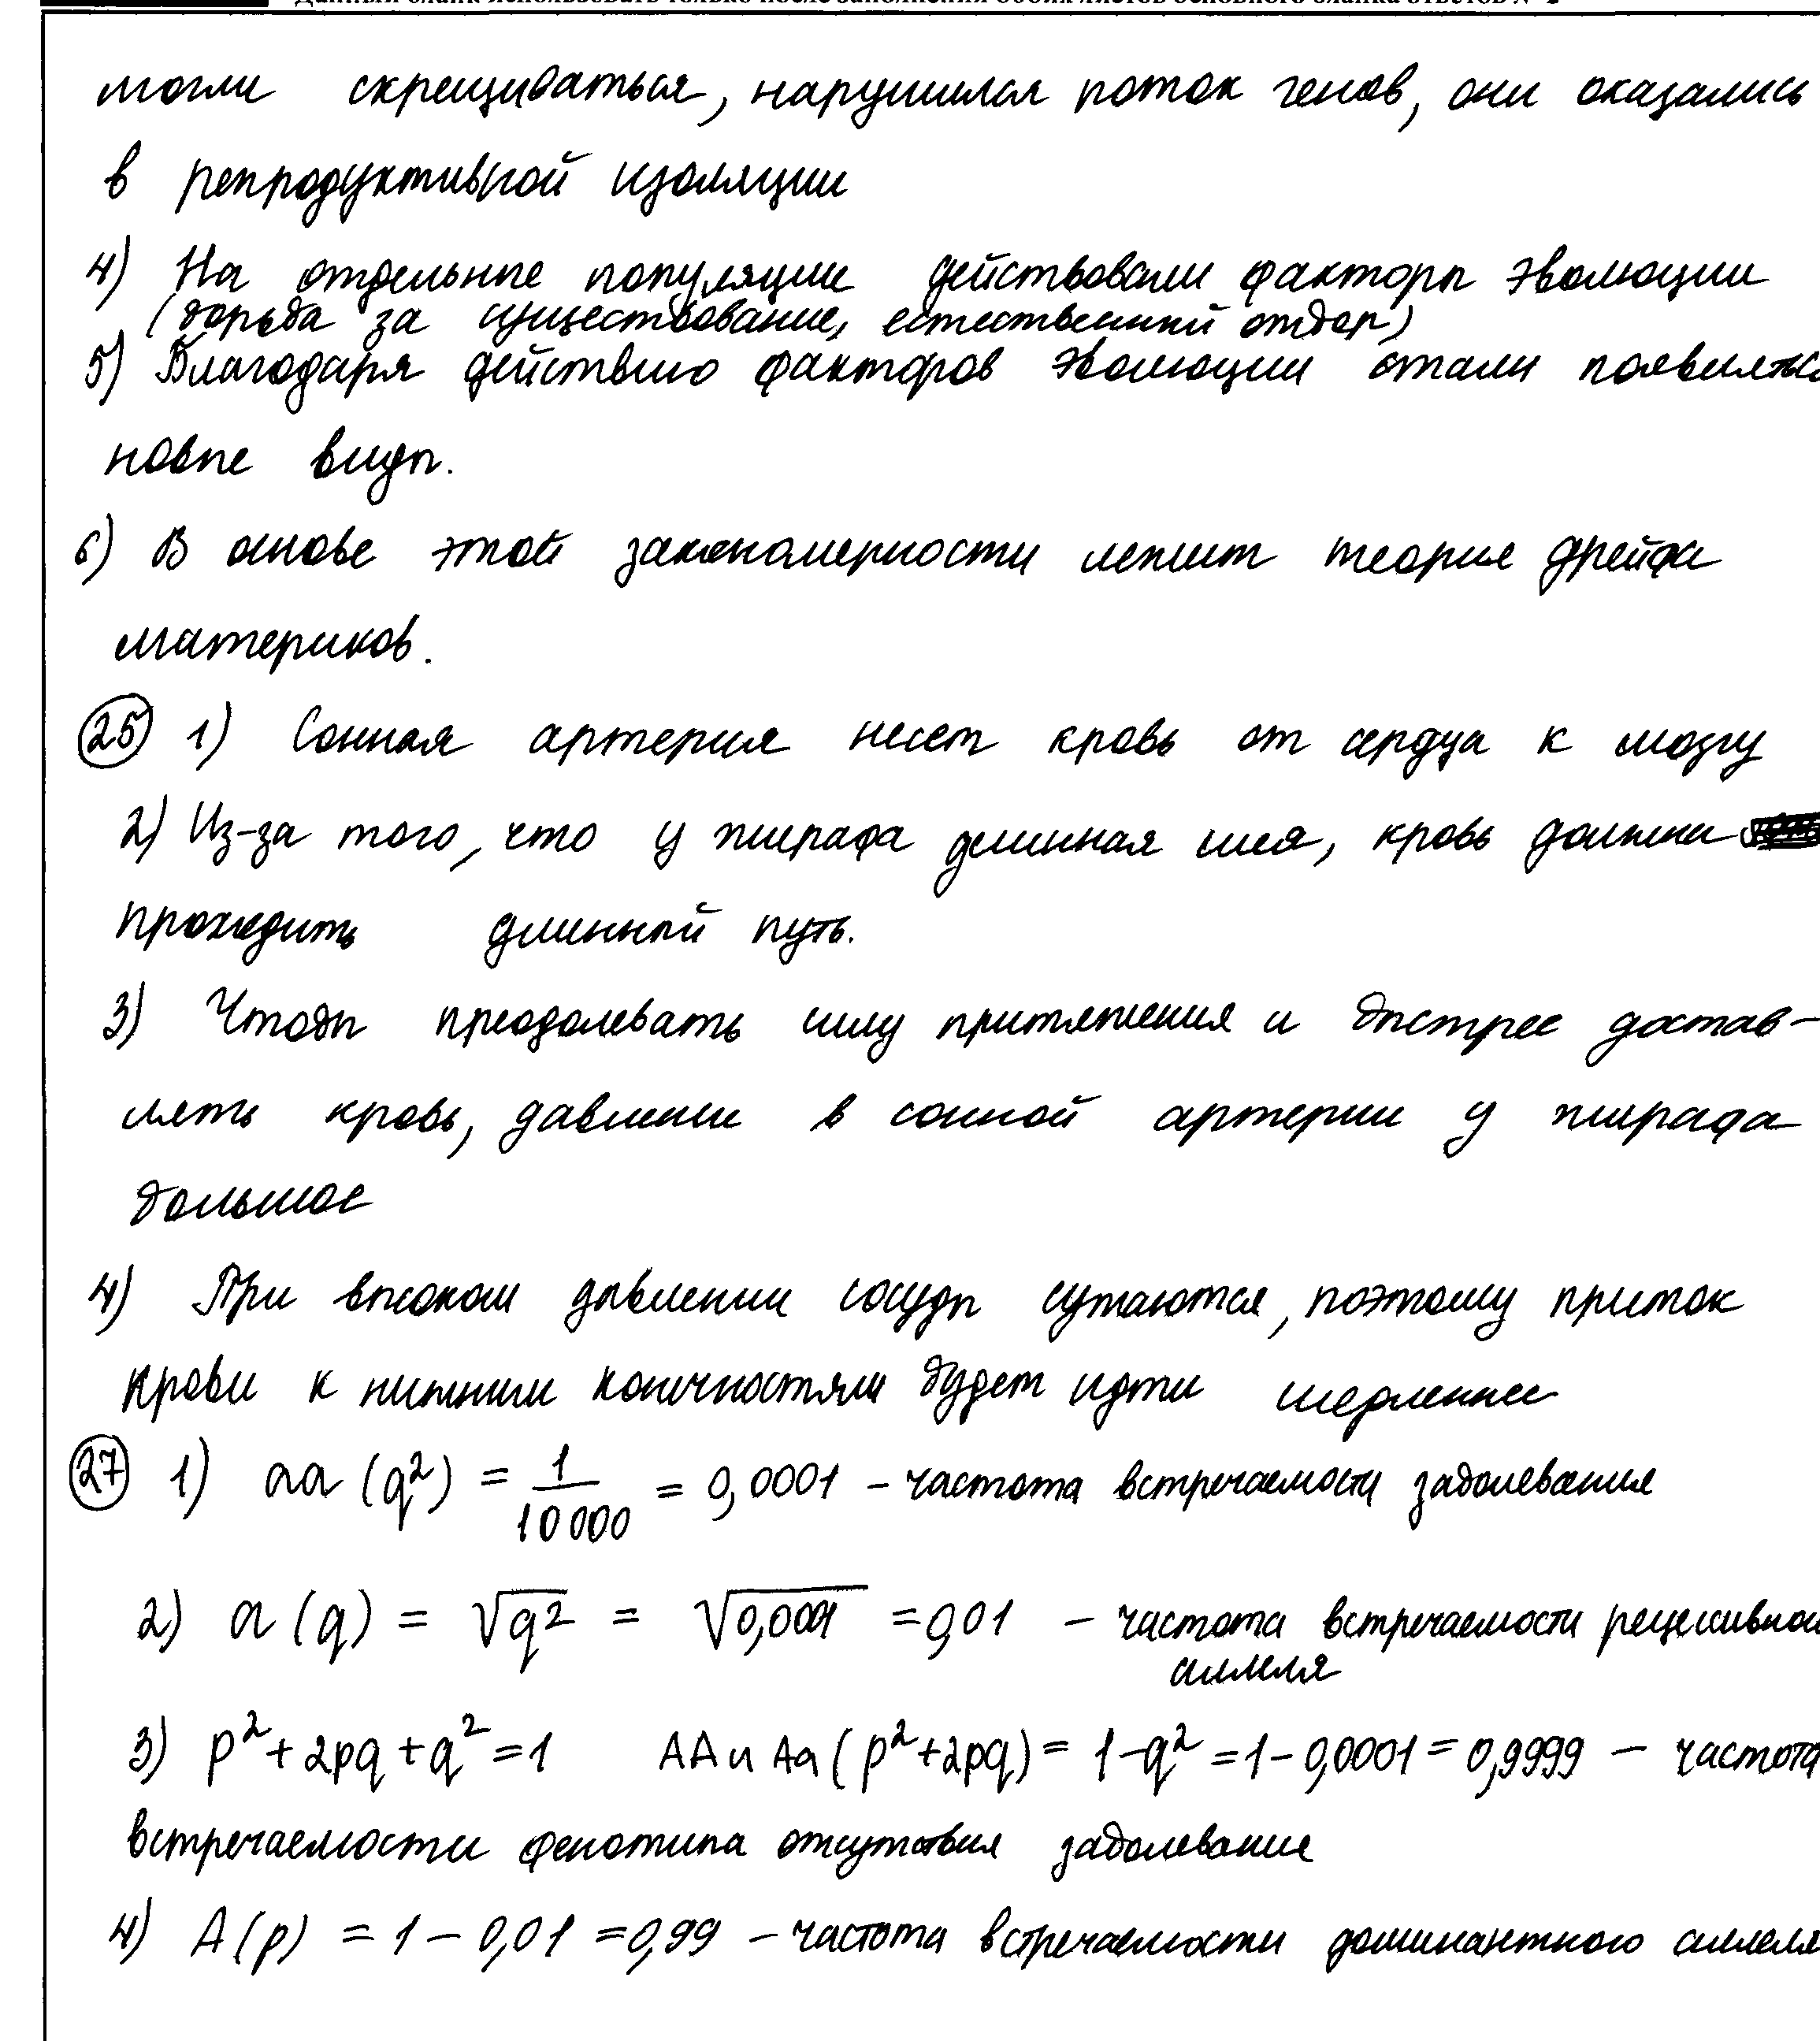 Данный бланк использовать только после заполнения обоих листов основного бланка ответов № 2
могли скрещиваться, нарушился поток генов, они оказались
в репродуктивной изоляции
4) На отдельные популяции действовали факторы эволюции
(борьба за существование, естественный отбор)
5) Благодаря действию факторов эволюции стали появляться
новые виды.
6) В основе этой закономерности лежит теория дрейфа
материков.
25 1) Сонная артерия несет кровь от сердца к мозгу
2) Из-за того, что у жирафа длинная шея, кровь должна
проходить длинный путь.
3) Чтобы преодолевать силу притяжения и быстрее достав-
лять кровь, давление в сонной артерии у жирафа
большое
4) При высоком давлении сосуды сужаются, поэтому приток
крови к нижним конечностям будет идти медленнее
27 1) aa (q²) = 1/10000 = 0,0001 - частота встречаемости заболевания
2) a (q) = √q² = √0,0001 = 0,01 - частота встречаемости рецессивного
аллеля
3) p² + 2pq + q² = 1 AA и Aa (p² + 2pq) = 1 - q² = 1 - 0,0001 = 0,9999 - частота
встречаемости фенотипа отсутствия заболевание
4) A (p) = 1 - 0,01 = 0,99 - частота встречаемости доминантного аллеля